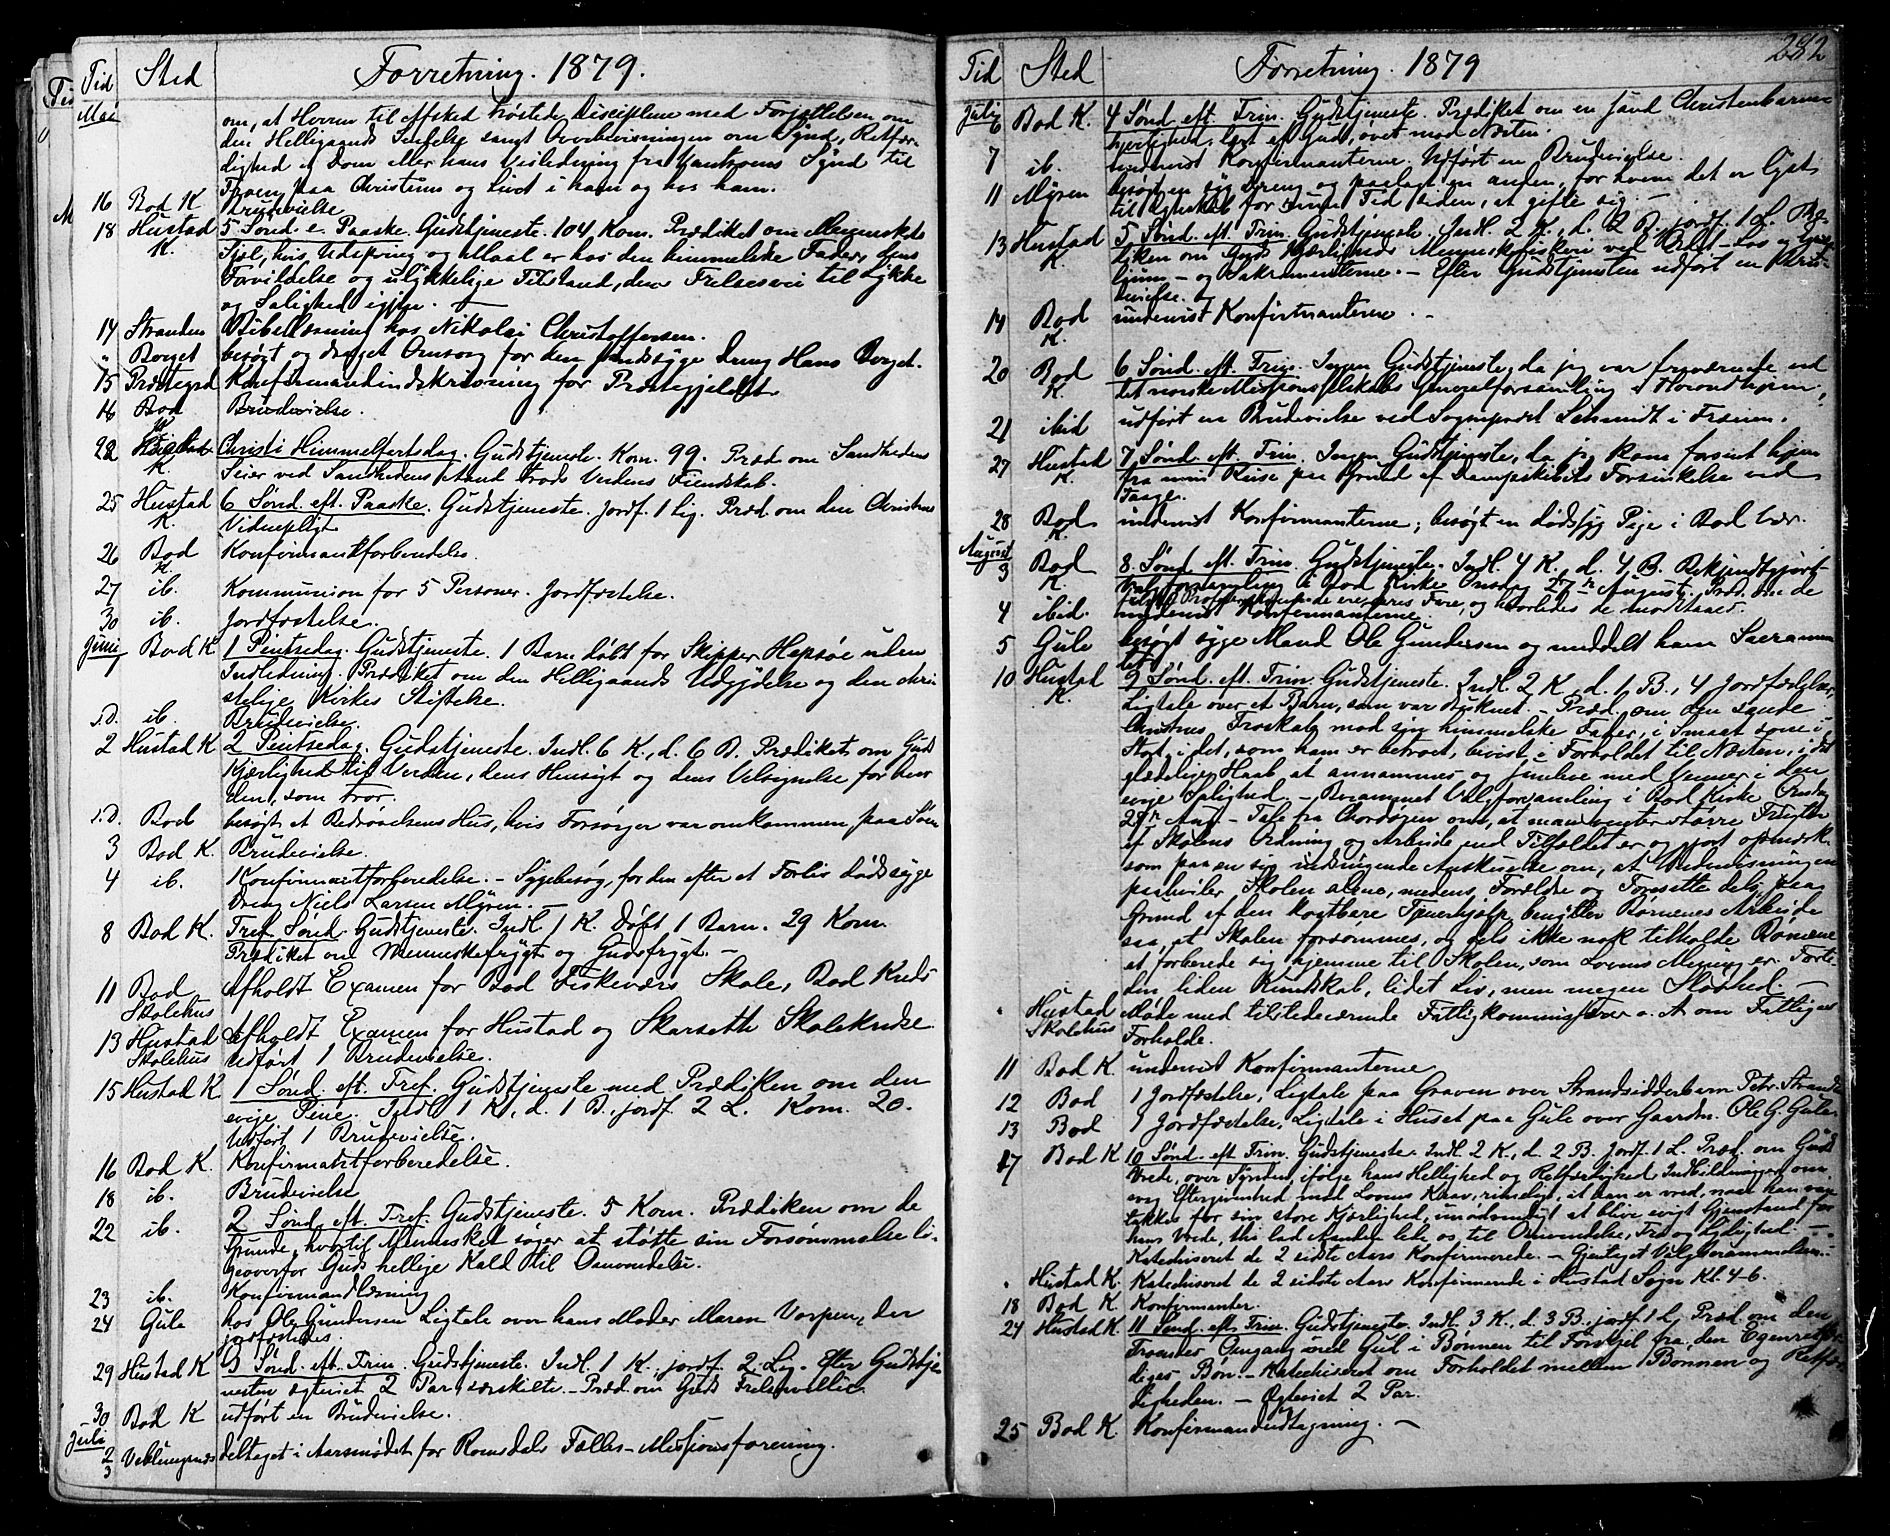 Tid Sted Forretning. 1879.
Mai om, at Herren til Afsked trøstede Disciplene med Forjættelsen om
den Helligaands Sendelse samt Overbevisningen om Synd, Retfær-
dighed og Dom eller hans Veiledning fra Vantroens Synd til
Troen paa Christum og Livet i ham og hos ham.
16 Bod K Brudevielse
18 Hustad K. 5 Sønd. e. Paaske. Gudstjeneste. 104 Kom. Prædiket om Menneskets
Sjæl, hvis Udspring og Maal er hos den himmelske Fader, dens
Forvildelse og ulykkelige Tilstand, dens Frelsesvei til Lykke
og Salighed igjen.
14 Stranden Bibellæsning hos Nikolai Christoffersen.
" Berget besøgt og draget Omsorg for den sindssyge Dreng Hans Berget.
15 Præstegrd Konfirmandindskrivning for Præstegjeldet
16 Bod K Brudevielse.
22 Hustad K. Christi Himmelfartsdag. Gudstjeneste. Kom. 99. Præd. om Sandhedens
Seier ved Sandhedens Aand trods Verdens Fiendskab.
25 Hustad K. 6 Sønd. eft. Paaske. Gudstjeneste. Jordf. 1 Lig. Præd. om den Christnes
Vidnepligt
26 Bod K. Konfirmantforberedelse.
27 ib. Kommunion for 5 Personer. Jordfæstelse.
30 ib. Jordfæstelse.
Juni 1 Bod K 1 Pintsedag. Gudstjeneste. 1 Barn døbt for Skipper Hepsøe uden
Indledning. Prædiket om den Helligaands Udgydelse og den chri-
stelige Kirkes Stiftelse.
s.D. ib. Brudevielse.
2 Hustad K 2 Pintsedag. Gudstjeneste. Indl. 6 K., d. 6 B. Prædiket om Guds
Kjærlighed til Verden, dens Hensigt og dens Velsignelse for hver
den, som tror.
s.D. Bod besøgt et Bedrøvelsens Hus, hvis Forsørger var omkommen paa Søen
3 Bod K. Brudevielse.
4 ib. Konfirmantforberedelse. - Sygebesøg, for den efter et Forliis dødssyge
Dreng Niels Larsen Myren. -
8 Bod K. Tref. Sønd. Gudstjeneste. Indl. 1 K. Døbt 1 Barn. 29 Kom.
Prædiket om Menneskefrygt og Gudsfrygt. -
11 Bod Skolehus Afholdt Examen for Bod Fiskeværs Skole, Bod Kreds
13 Hustad Skolehus Afholdt Examen for Hustad og Skarseth Skolekredse.
Udført 1 Brudevielse.
15 Hustad K 1 Sønd. eft. Tref. Gudstjeneste med Prædiken om den
evige Pine. Indl. 1 K., d. 1 B., jordf. 2 L. Kom. 20.
Udført 1 Brudevielse.
16 Bod K. Konfirmantforberedelse.
18 ib. Brudevielse
22 ib. 2 Sønd. eft. Tref. Gudstjeneste. 5 Kom. Prædiken om de
Grunde, hvortil Mennesket søger at støtte sin Forsømmelse li-
geoverfor Guds hellige Kald til Omvendelse.
23 ib. Konfirmandlæsning
24 Gule hos Ole Gundersen Ligtale over hans Moder Maren Vorpen, der
jordfæstedes.
29 Hustad K 3 Sønd. eft. Trin. Gudstjeneste. Indl. 1 K., jordf. 2 Lig. Efter Gudstje-
nesten ægteviet 2 Par særskilte. - Præd. om Guds Frelsesvillie.
30 Bod K udført en Brudevielse.
Juli 2 3 Veblungsnæs deltaget i Aarsmødet for Romsdals Fælles-Missionsforening.
282
Tid Sted Forretning. 1879
Juli 6 Bod K. 4 Sønd. eft. Trin. Gudstjeneste. Prædiket om en sand Christenbarm-
hjertighed, lært af Gud, øvet mod Næsten.
7 ib. undervist Konfirmanterne. Udført en Brudevielse.
11 Myren besøgt en syg Dreng og paalagt en anden, for hvem det er lyst
til Ægteskab for Tid siden, at gifte sig. -
13 Hustad K. 5 Sønd. eft. Trin. Gudstjeneste. Indl. 2 K., d. 2 B., jordf. 1 L. Præ-
diken om Guds Kjærligheds Menneskefiskeri ved Ordet - Lov og Evange-
lium - og Sakramenterne. - Efter Gudstjenesten udført en Bru-
devielse.
14 Bod K. undervist Konfirmanterne. -
20 Bod K. 6 Sønd. eft. Trin. Ingen Gudstjeneste, da jeg var fraværende ved
det norske Missionsselskabs Generalforsamling i Throndhjem;
21 ibid udført en Brudevielse ved Sogneprest Schmidt i Fræen.
27 Hustad K. 7 Sønd. eft. Trin. Ingen Gudstjeneste, da jeg kom forsent hjem
fra min Reise paa Grund af Dampskibets Forsinkelse ved
Taage.
28 Bod K. undervist Konfirmanterne; besøgt en dødssyg Pige i Bod Vær.
August 3 Bod K. 8 Sønd. eft. Trin. Gudstjeneste. Indl. 4 K., d. 4 B. Bekjendtgjort
Valgforsamling i Bod Kirke Onsdag 27de August. Præd. om de
falske Propheter, deres Fare, og hvorledes de modstaaes.
4 ibid. undervist Konfirmanterne.
5 Gule besøgt syge Mand Ole Gundersen og meddelt ham Sacramen-
tet.
10 Hustad K. 9 Sønd. eft. Trin. Gudstjeneste. Indl. 2 K., d. 1 B., 4 Jordfæstelser,
Ligtale over et Barn, som var druknet. - Præd. om den sande
Christnes Troskab mod sin himmelske Fader, i Smaat som i
Stort, i det, som ham er betroet, bevist i Forholdet til Næsten, i det
glædelige Haab at annammes og samles med Venner i den
evige Salighed. - Berammet Valgforsamling i Bod Kirke Onsdag
27de Aug. - Tale fra Chordøren om, at man venter større Frugter
af Skolens Ordning og Arbeide end Tilfældet er og gjort opmærk-
som paa en sig indsnigende Anskuelse om, at Undervisningen
paahviler Skolen alene, medens Forældre og Foresatte dels paa
Grund af den kostbare Tjenerhjælp benytter Børnenes Arbeide
saa, at Skolen forsømmes, og dels ikke nok tilholde Børnene
at forberede sig hjemme til Skolen, som Lovens Mening er.
liden Kundskab, lidet Lys, men megen Sløvhed. -
" Hustad Skolehus Møde med tilstedeværende Fattigkommissærer o. A om Fattiges
Forholde.
11 Bod K. undervist Konfirmanterne
12 Bod 1 Jordfæstelse, Ligtale paa Graven over Strandsidderbarn Petr. Strande
13 Bod 1 Jordfæstelse, Ligtale i Huset paa Gule over Gaardm. Ole G. Gule.
17 Bod K 10 Sønd. eft Trin. Gudstjeneste. Indl. 2 K., d. 2 B. Jordf. 1 L. Præd. om Guds
Vrede over Synden, ifølge hans Hellighed og Retfærdighed. Indbildningen om
evig Eftergivenhed mod Lovens Krav, rimeligt, at han er vred, naar han
takkes for sin store Kjærlighed, unødvendigt at blive evigt Gjenstand for
hans Vrede, thi lad Aanden lede os til Omvendelse, Tro og Lydighed. -
Katechiseret de 2 sidste Aars Konfirmerede. - Gjentaget Valgberammelsen. -
" Hustad K. Katechiseret de 2 sidste Aars Konfirmerede i Hustad Sogn Kl. 4-6.
18 Bod K Konfirmanter.
24 Hustad K. 11 Sønd. eft. Trin. Gudstjeneste. Indl. 3 K., d. 3 B., jordf. 1 L. Præd. om den
Troendes Omgang med Gud i Bønnen til Forskjel fra den Egenretfær-
diges Bøn. - Katechiseret om Forholdet mellem Bønnen og Retfær-
digheden. - Ægteviet 2 Par.
25 Bod K Konfirmandudtagning. -